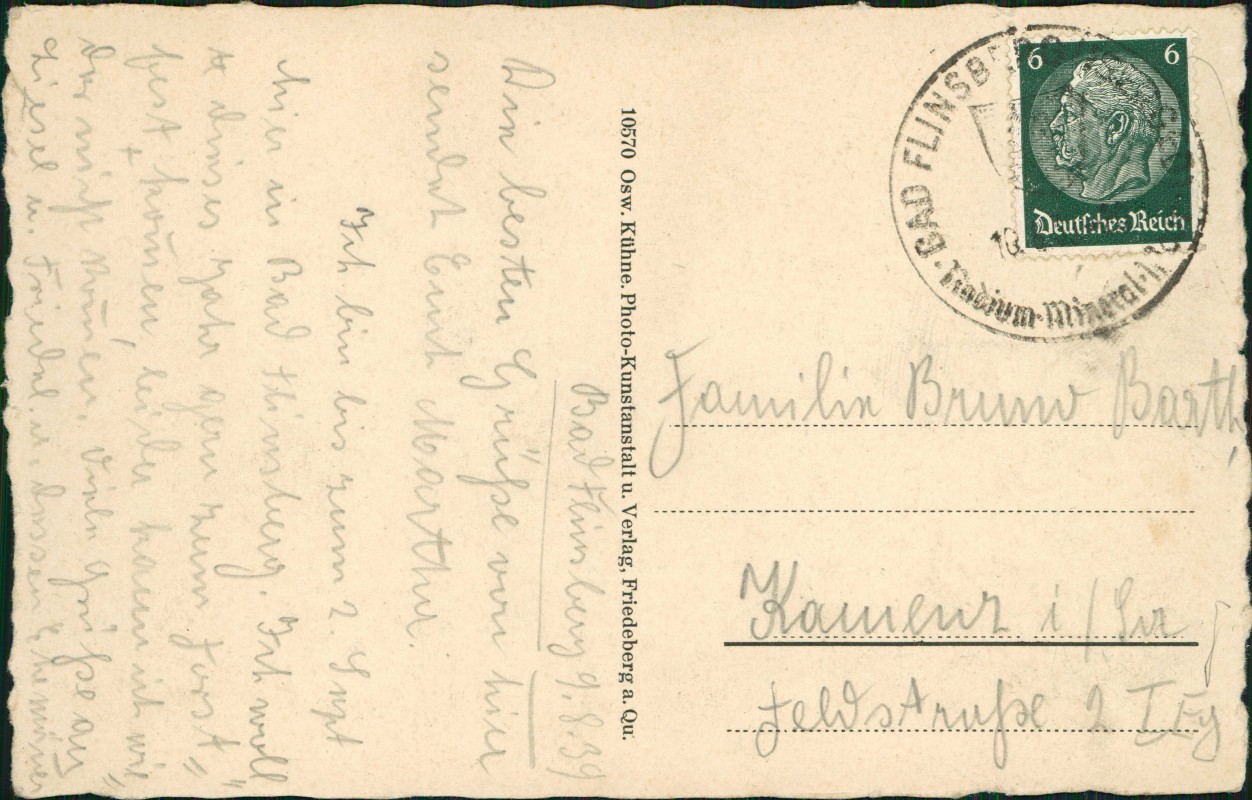 Bad Flinsberg 9.8.39
Die besten Grüße von hier
sendet Euch Marthe.
Ich bin bis zum 2. Sept
hier in Bad Flinsberg. Ich woll
te dieses Jahr gern zum Forst=
fest kommen, leider kann ich wie
der nicht kommen. Viele Grüße an
Liesel u. Friedel u. dessen Ehemänner
10570 Osw. Kühne. Photo-Kunstanstalt u. Verlag, Friedeberg a. Qu.
BAD FLINSBERG
10.
Radium-Mineral-
6 6
Deutsches Reich
Familie Bruno Barth,
Kamenz i/Sa
Feldstraße 2 I